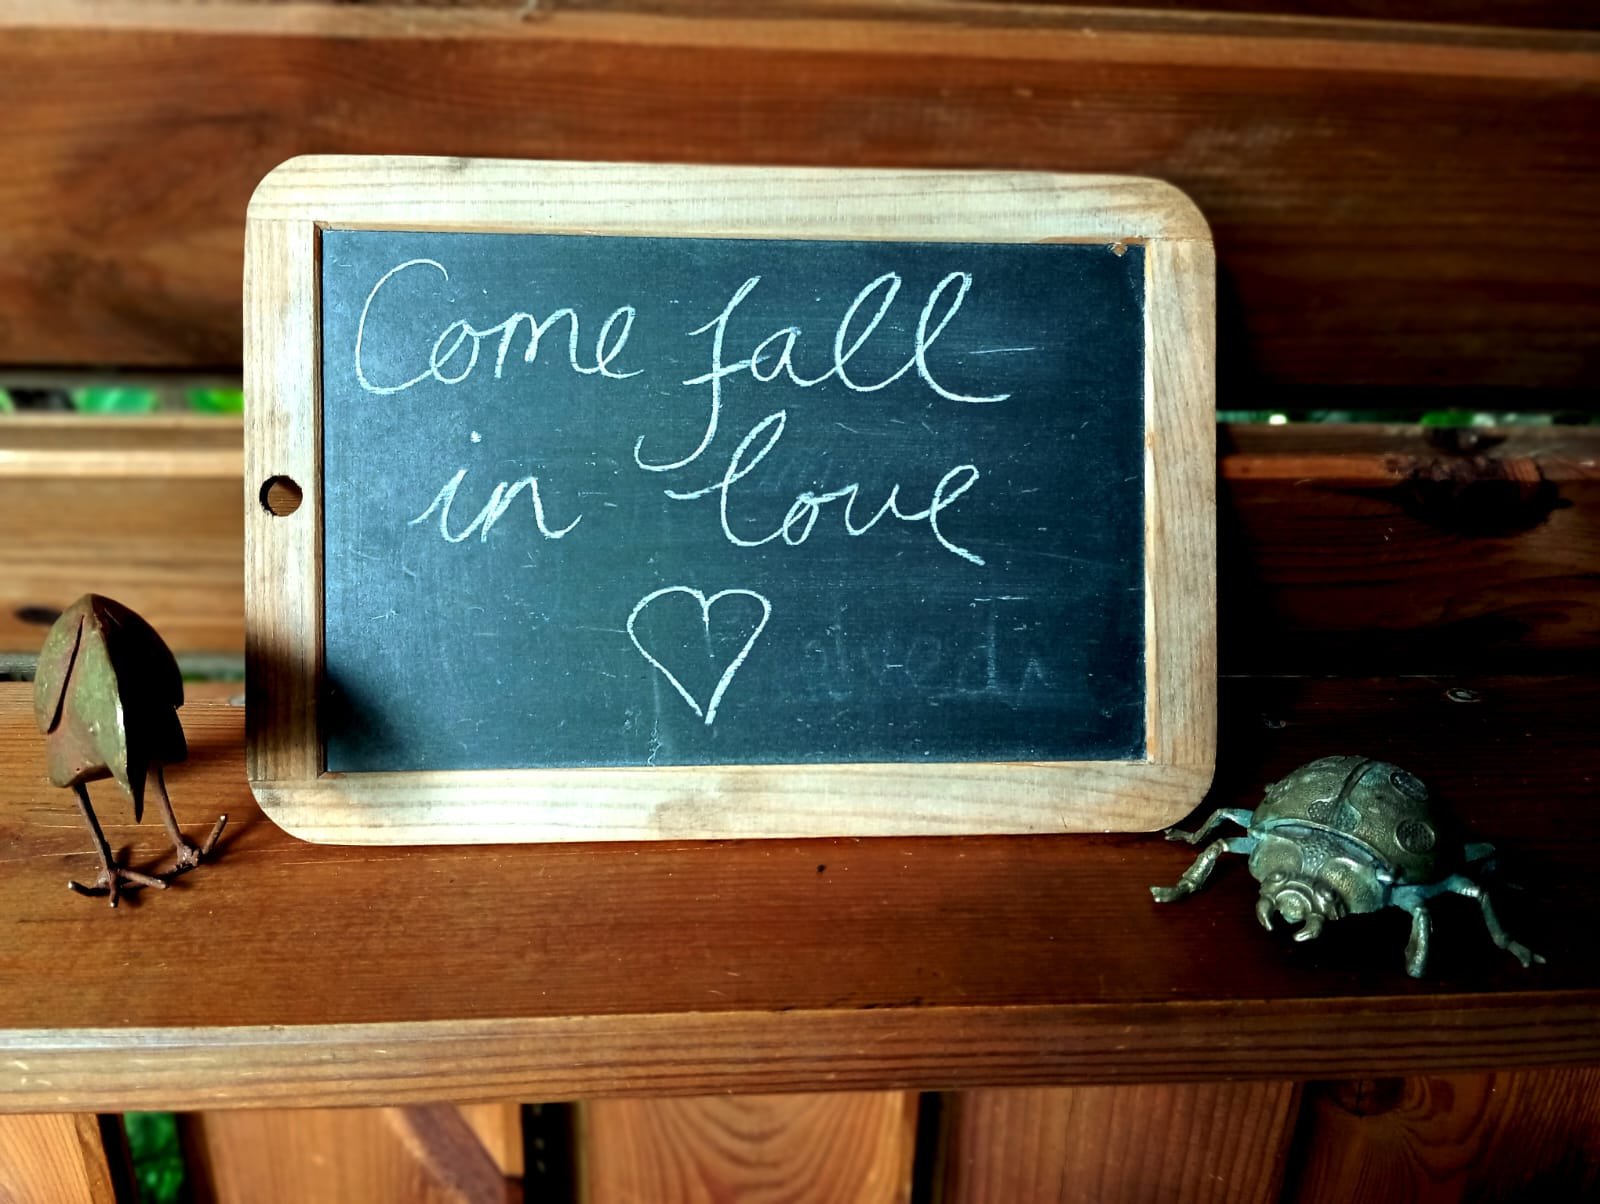 Come fall
in love